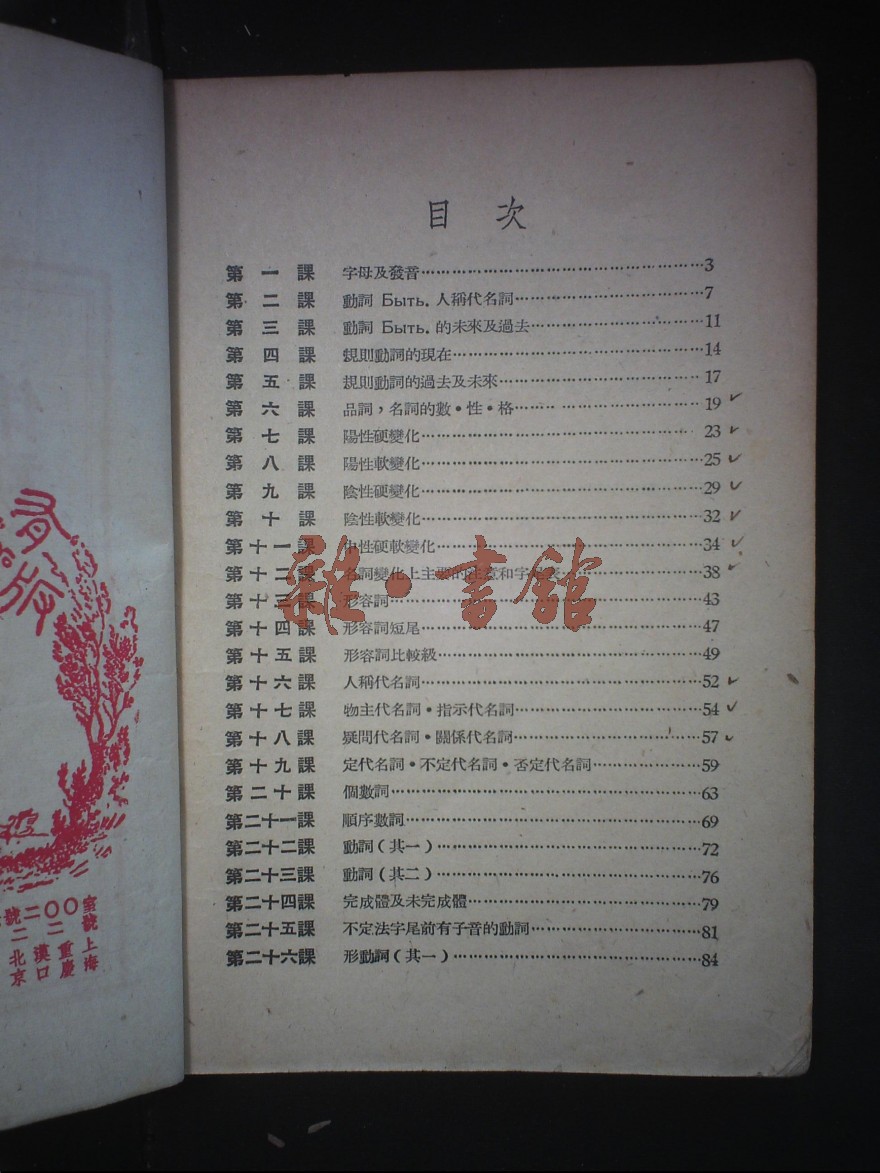 目次
第一課 字母及發音……3
第二課 動詞 Быть. 人稱代名詞……7
第三課 動詞 Быть. 的未來及過去……11
第四課 規則動詞的現在……14
第五課 規則動詞的過去及未來……17
第六課 品詞，名詞的數·性·格……19
第七課 陽性硬變化……23
第八課 陽性軟變化……25
第九課 陰性硬變化……29
第十課 陰性軟變化……32
第十一課 中性硬軟變化……34
第十二課 名詞變化上主要的注意和字尾表……38
第十三課 形容詞……43
第十四課 形容詞短尾……47
第十五課 形容詞比較級……49
第十六課 人稱代名詞……52
第十七課 物主代名詞·指示代名詞……54
第十八課 疑問代名詞·關係代名詞……57
第十九課 定代名詞·不定代名詞·否定代名詞……59
第二十課 個數詞……63
第二十一課 順序數詞……69
第二十二課 動詞(其一)……72
第二十三課 動詞(其二)……76
第二十四課 完成體及未完成體……79
第二十五課 不定法字尾前有子音的動詞……81
第二十六課 形動詞(其一)……84
雜·書館
上海
重慶
漢口
北京